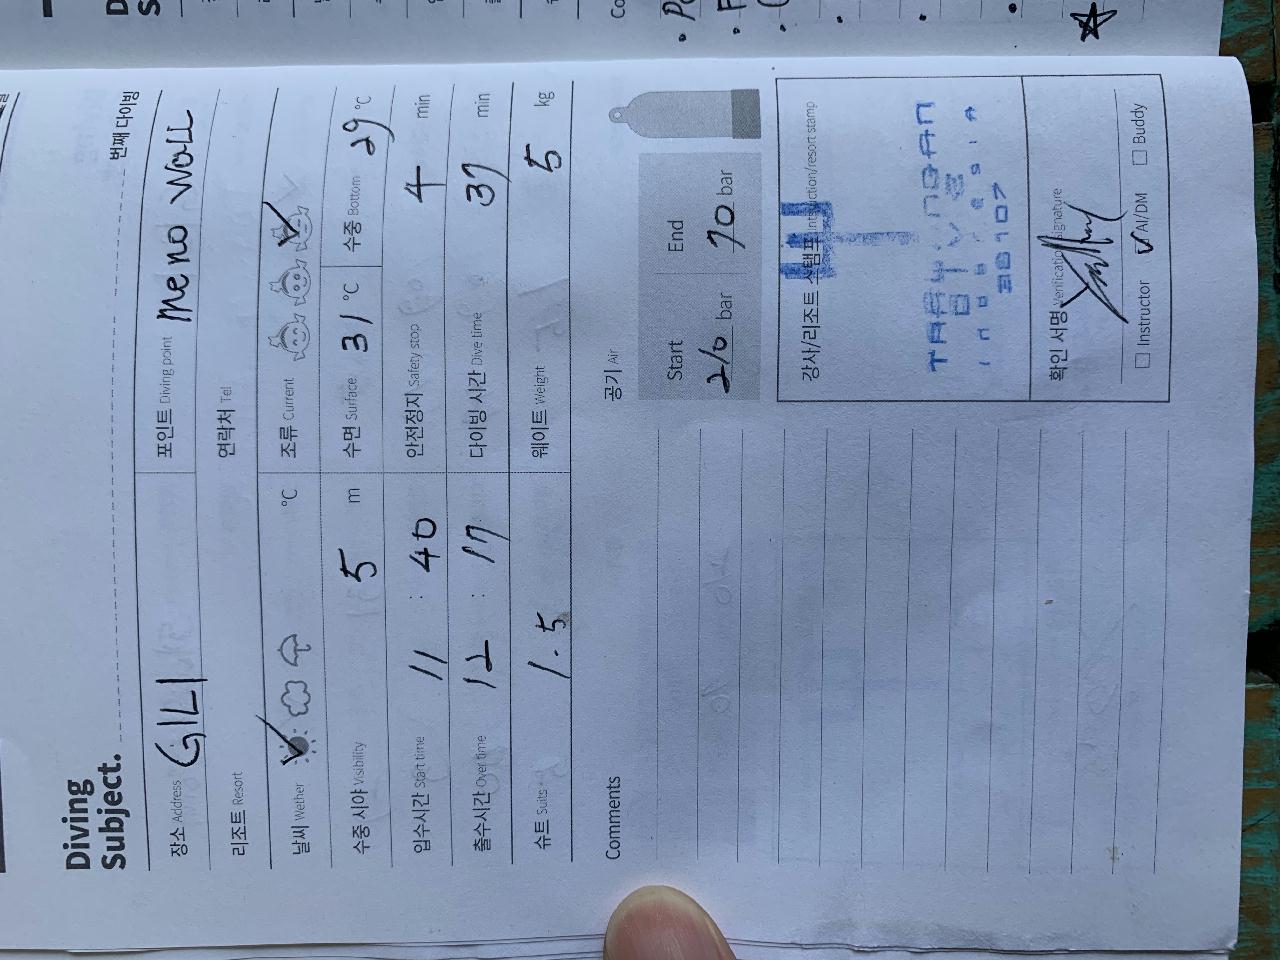 Diving
Subject.
번째 다이빙
장소 Address GILI
포인트 Diving point Meno Wall
리조트 Resort
연락처 Tel
날씨 Wether °C
조류 Current
수중 시야 Visibility 5 m
수면 Surface 31 °C
수중 Bottom 29 °C
입수시간 Start time 11 : 40
안전정지 Safety stop 4 min
출수시간 Over time 12 : 17
다이빙 시간 Dive time 37 min
슈트 Suits 1.5
웨이트 Weight 5 kg
Comments
공기 Air
Start End
210 bar 70 bar
강사/리조트 스탬프 Intstruction/resort stamp
확인 서명 Verification signature
Instructor AI/DM Buddy